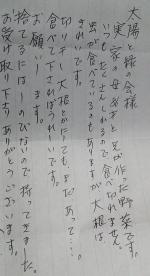 太陽と緑の会様
実家の母が手と足が作った野菜です。
いつもたくさんくるので食べ切れません。
虫が食べているのもありますが大根は
きれいです。
切り干し大根とかにしてもまだあって…。
食べて下さればうれしいです。
お願いします。
捨てるにはしのびないので持ってきました。
お受け取り下さりありがとうございます。